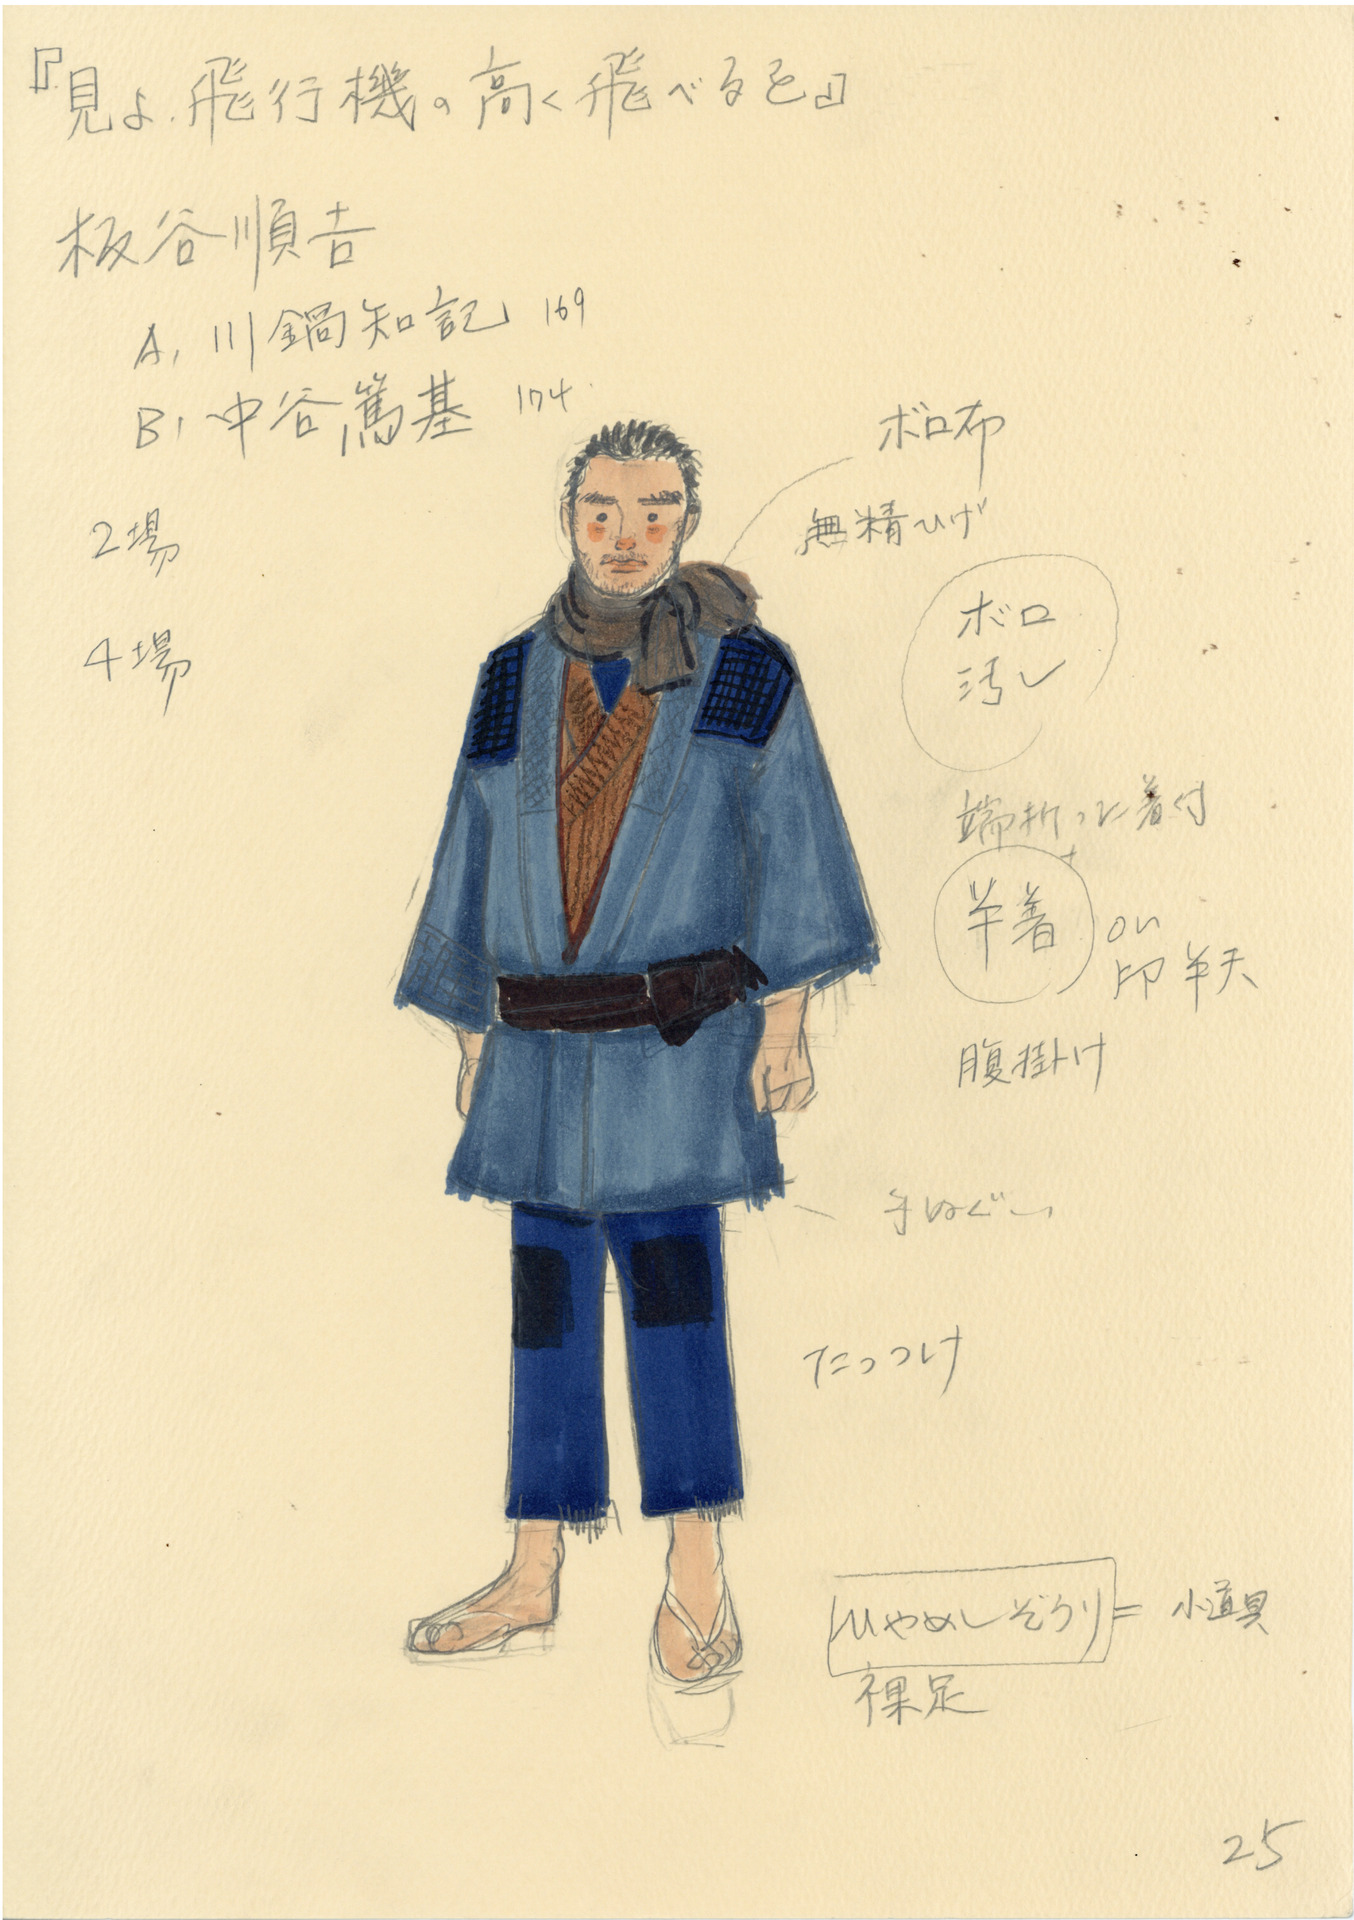 『見よ、飛行機の高く飛べるを』
板谷順吉
A, 川鍋知記 169
B, 中谷篤基 174
2場
4場
ボロ布
無精ひげ
ボロ
汚し
端折った着付
半着 or
印半天
腹掛け
手ぬぐい
たっつけ
ひやめしぞうり = 小道具
裸足
25